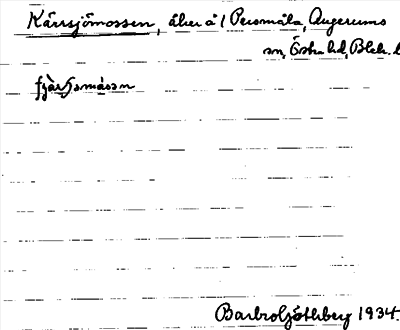 Kärrsjömossen, åker å 1 Persmåla, Augerums
sn, Östra hd, Blek. l
fjärsmåsan
Barbro Göthberg 1934.